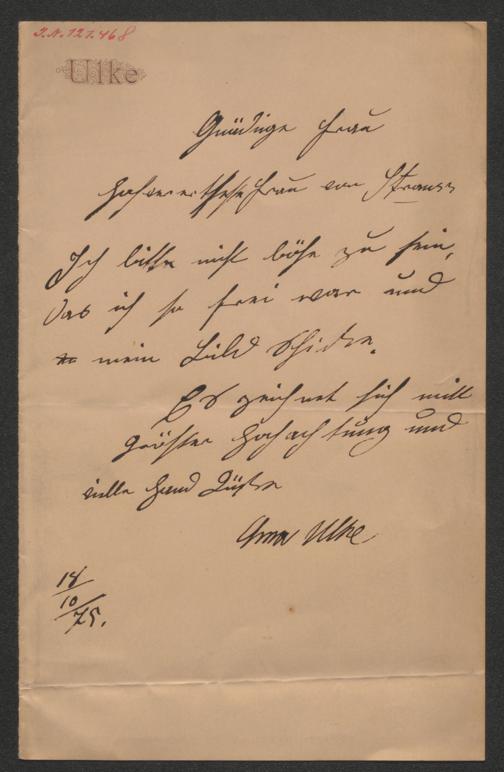 J.N. 121.468
Ulke
Gnädige Frau
Hochverertheste Frau von Strauss
Ich bitte nicht böse zu sein,
das ich so frei war und
mein Bild schicke.
Es zeichnet sich mitt
gröster Hochachtung und
ville Hand Küsse
Anna Ulke
18/10/75.